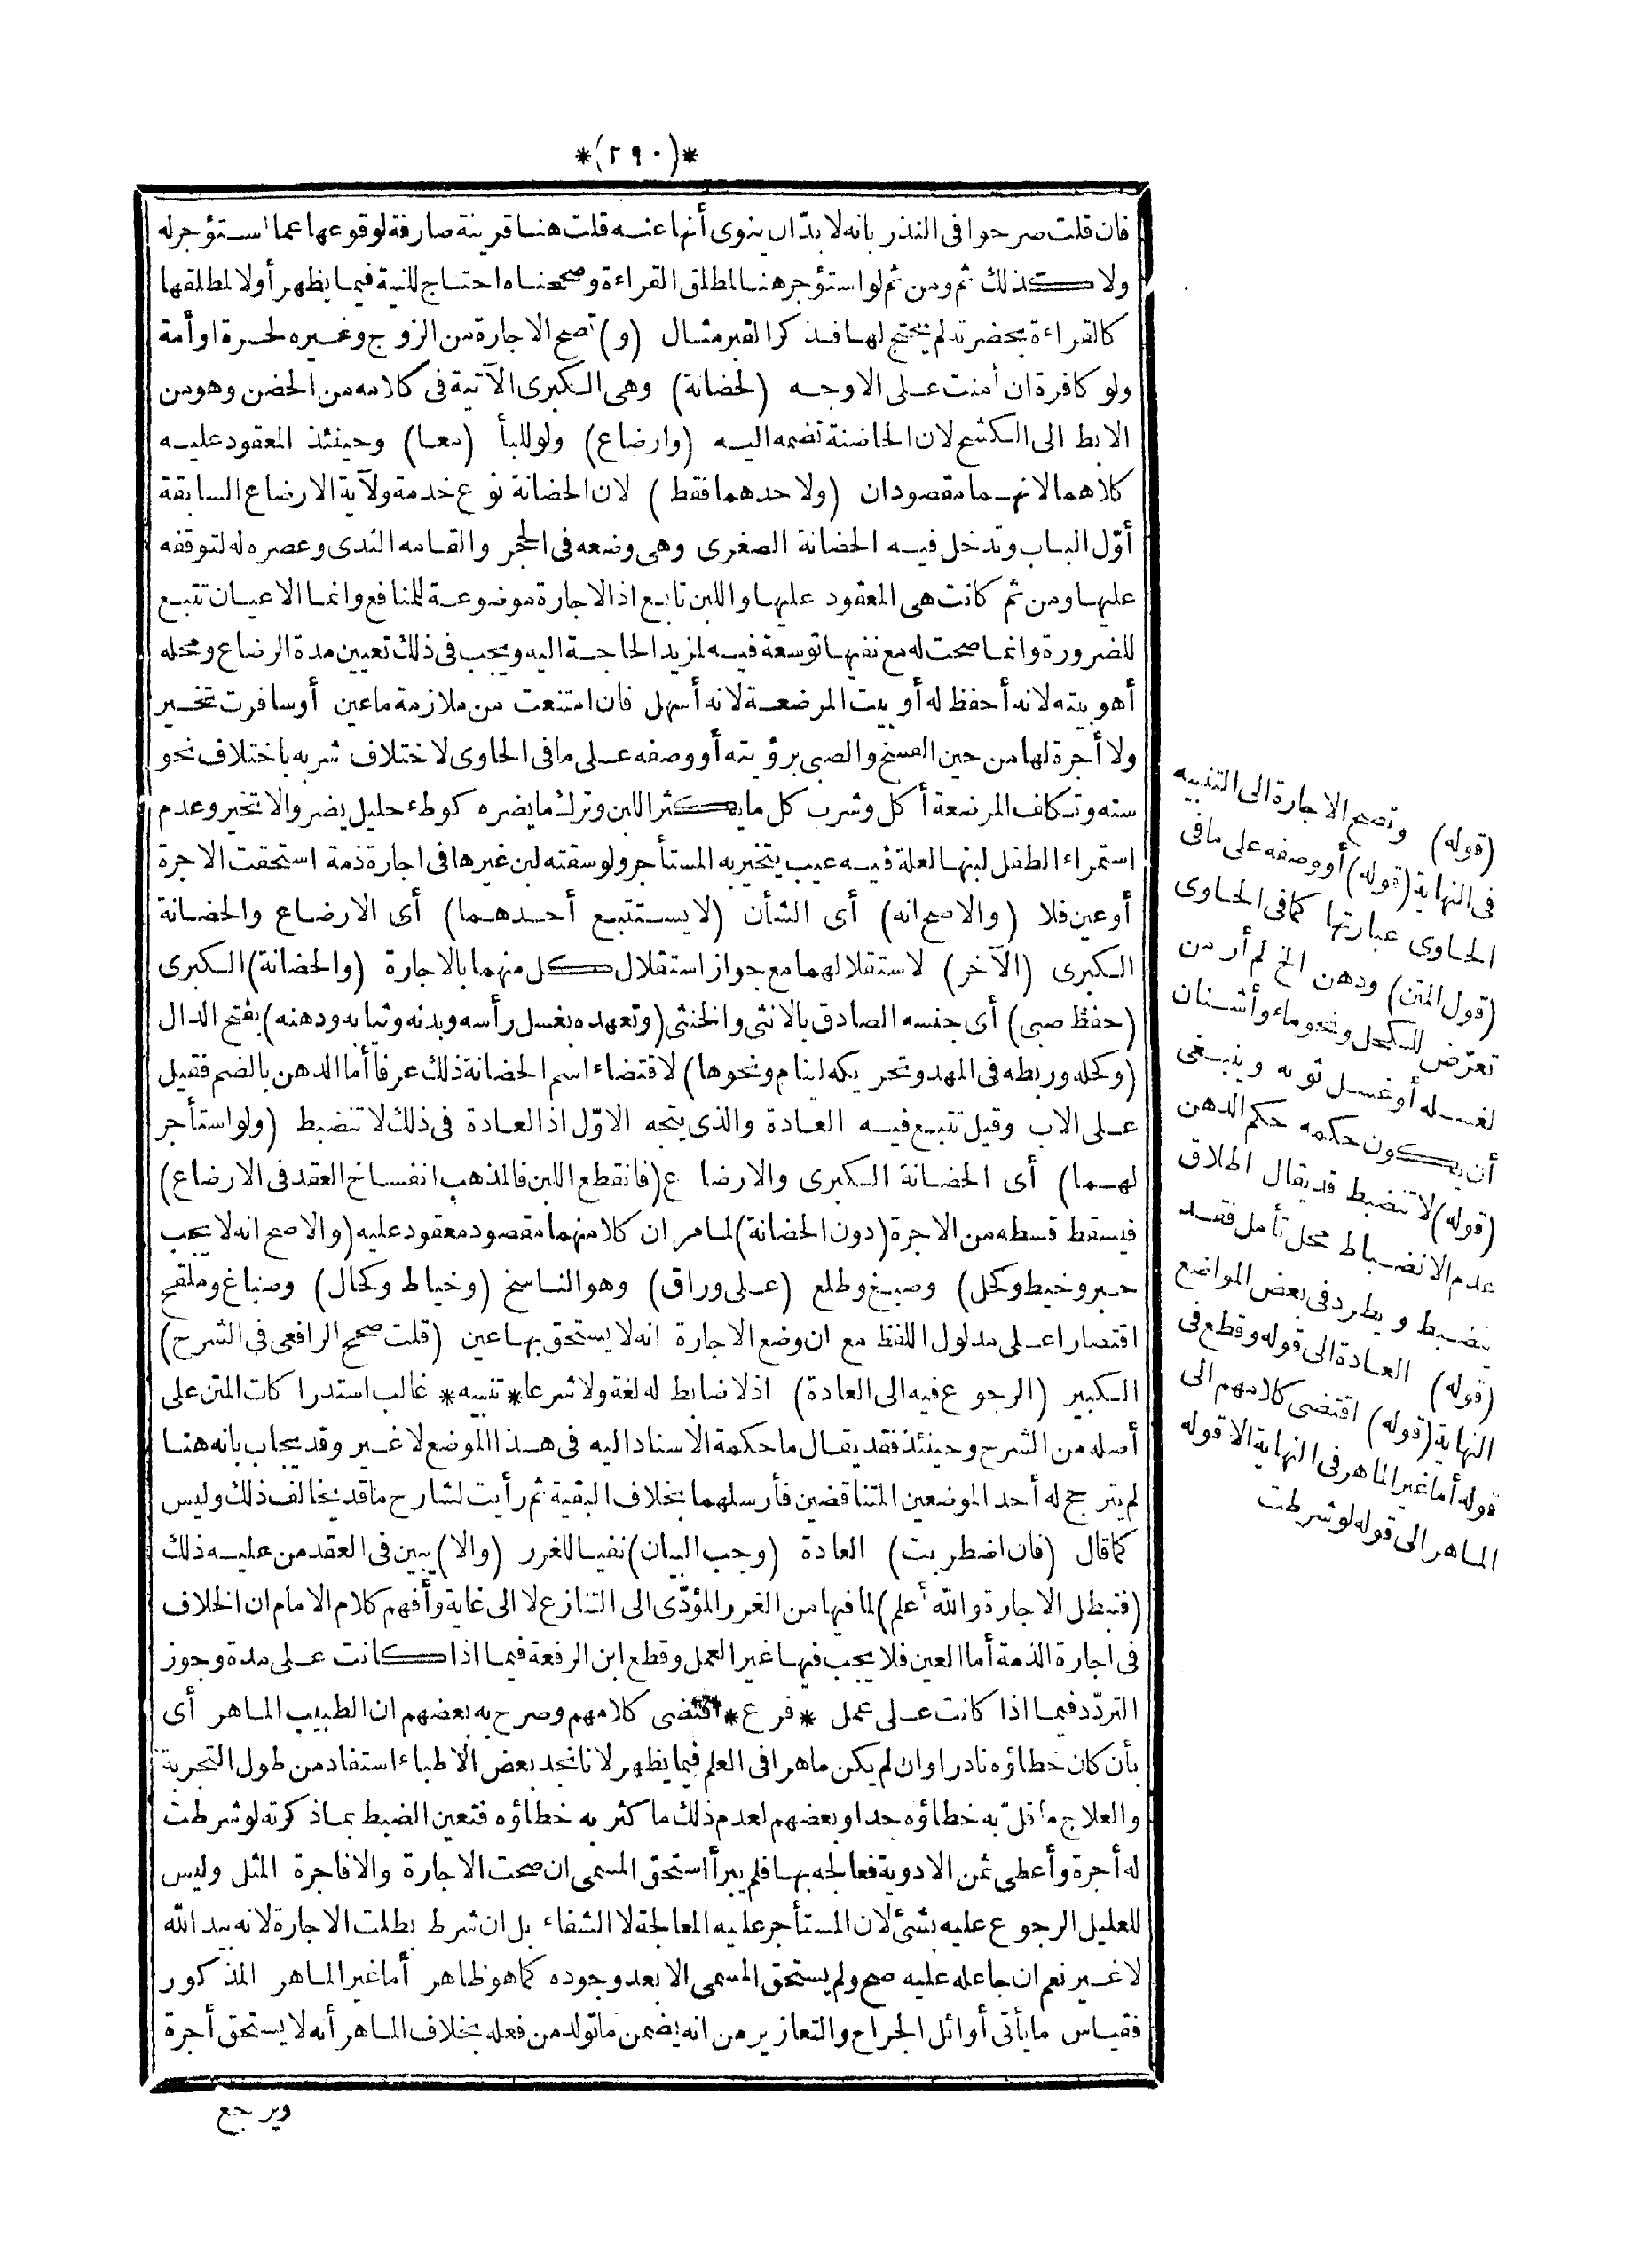 *(٢٩٠)*
فان قلت صرحوا فى النذر بانه لا بدّ ان ينوى أنها عنه قلت هنا قرينة صارفة لوقوعها عما استؤجر له
ولا كذلك ثم ومن ثم لو استؤجر هنا لمطلق القراءة وصححناه احتاج للنية فيما يظهر أولا لمطلقها
كالقراءة بحضرته لم يحتج لها فذكر القبر مثال (و) تصح الاجارة من الزوج وغيره لحرة او أمة
ولو كافرة ان أمنت على الاوجه (لحضانة) وهى الكبرى الآتية فى كلامه من الحضن وهو من
الابط الى الكشح لان الحاضنة تضمه اليه (وارضاع) ولو للبأ (معا) وحينئذ المعقود عليه
كلاهما لانهما مقصودان (ولاحدهما فقط) لان الحضانة نوع خدمة ولآية الارضاع السابقة
أوّل الباب وتدخل فيه الحضانة الصغرى وهى وضعه فى الحجر والقامه الثدى وعصره له لتوقفه
عليها ومن ثم كانت هى المعقود عليها واللبن تابع اذ الاجارة موضوعة للمنافع وانما الاعيان تتبع
للضرورة وانما صحت له مع نفيها توسعة فيه لمزيد الحاجة اليه ويجب فى ذلك تعيين مدة الرضاع ومحله
أهو بيته لانه أحفظ له أو بيت المرضعة لانه أسهل فان امتنعت من ملازمة ما عين أو سافرت تخير
ولا أجرة لها من حين الفسخ والصبى برؤيته أو وصفه على ما فى الحاوى لاختلاف شربه باختلاف نحو
سنه وتكلف المرضعة أكل وشرب كل ما يكثر اللبن وترك ما يضره كوطء حليل يضر والا تخير وعدم
استمراء الطفل لبنها لعلة فيه عيب يتخير به المستأجر ولو سقته لبن غيرها فى اجارة ذمة استحقت الاجرة
أو عين فلا (والاصح انه) أى الشأن (لا يستتبع أحدهما) أى الارضاع والحضانة
الكبرى (الآخر) لاستقلالهما مع جواز استقلال كل منهما بالاجارة (والحضانة) الكبرى
(حفظ صبى) أى جنسه الصادق بالانثى والخنثى (وتعهده بغسل رأسه وبدنه وثيابه ودهنه) بفتح الدال
(وكحله وربطه فى المهد وتحريكه لينام ونحوها) لاقتضاء اسم الحضانة ذلك عرفا أما الدهن بالضم فقيل
على الاب وقيل تتبع فيه العادة والذى يتجه الاوّل اذ العادة فى ذلك لا تنضبط (ولو استأجر
لهما) أى الحضانة الكبرى والارضاع (فانقطع اللبن فالمذهب انفساخ العقد فى الارضاع)
فيسقط قسطه من الاجرة (دون الحضانة) لما مر ان كلا منهما مقصود معقود عليه (والاصح انه لا يجب
حبر وخيط وكحل) وصبغ وطلع (على وراق) وهو الناسخ (وخياط وكحال) وصباغ وملقح
اقتصارا على مدلول اللفظ مع ان وضع الاجارة انه لا يستحق بها عين (قلت صحح الرافعى فى الشرح)
الكبير (الرجوع فيه الى العادة) اذ لا ضابط له لغة ولا شرعا *تنبيه* غالب استدراكات المتن على
أصله من الشرح وحينئذ فقد يقال ما حكمة الاسناد اليه فى هذا الموضع لا غير وقد يجاب بانه هنا
لم يترجح له أحد الموضعين المتناقضين فأرسلهما بخلاف البقية ثم رأيت لشارح ما قد يخالف ذلك وليس
كما قال (فان اضطربت) العادة (وجب البيان) نفيا للغرر (والا) يبين فى العقد من عليه ذلك
(فتبطل الاجارة والله أعلم) لما فيها من الغرر المؤدّى الى التنازع لا الى غاية وأفهم كلام الامام ان الخلاف
فى اجارة الذمة أما العين فلا يجب فيها غير العمل وقطع ابن الرفعة فيما اذا كانت على مدة وجوز
التردّد فيما اذا كانت على عمل *فرع* اقتضى كلامهم وصرح به بعضهم ان الطبيب الماهر أى
بأن كان خطاؤه نادرا وان لم يكن ماهرا فى العلم فيما يظهر لانا نجد بعض الاطباء استفاد من طول التجربة
والعلاج ما قلّ به خطاؤه جدا وبعضهم لعدم ذلك ما كثر به خطاؤه فتعين الضبط بما ذكرته لو شرطت
له أجرة وأعطى ثمن الادوية فعالجه بها فلم يبرأ استحق المسمى ان صحت الاجارة والا فاجرة المثل وليس
للعليل الرجوع عليه بشئ لان المستأجر عليه المعالجة لا الشفاء بل ان شرط بطلت الاجارة لانه بيد الله
لا غير نعم ان جاعله عليه صح ولم يستحق المسمى الا بعد وجوده كما هو ظاهر أما غير الماهر المذكور
فقياس ما يأتى أوائل الجراح والتعازير من انه يضمن ما تولد من فعله بخلاف الماهر أنه لا يستحق أجرة
ويرجع
(قوله) وتصح الاجارة الى التنبيه
فى النهاية (قوله) أو وصفه على ما فى
الحاوى عبارتها كما فى الحاوى
(قول المتن) ودهن الخ لم أر من
تعرّض للكحل ونحو ماء وأشنان
لغسله أو غسل ثوبه وينبغى
أن يكون حكمه حكم الدهن
(قوله) لا تنضبط قد يقال اطلاق
عدم الانضباط محل تأمل فقد
ينضبط ويطرد فى بعض المواضع
(قوله) العادة الى قوله وقطع فى
النهاية (قوله) اقتضى كلامهم الى
قوله أما غير الماهر فى النهاية الا قوله
الماهر الى قوله لو شرطت